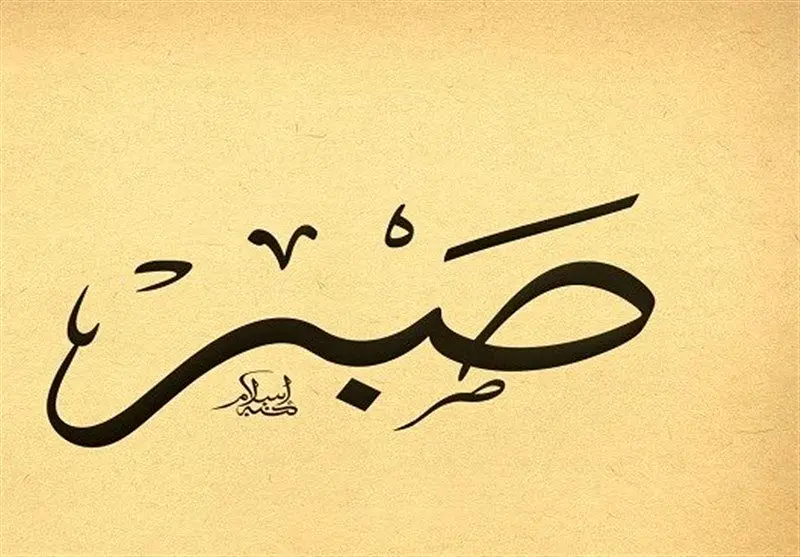 صبر
كتبه إسلام